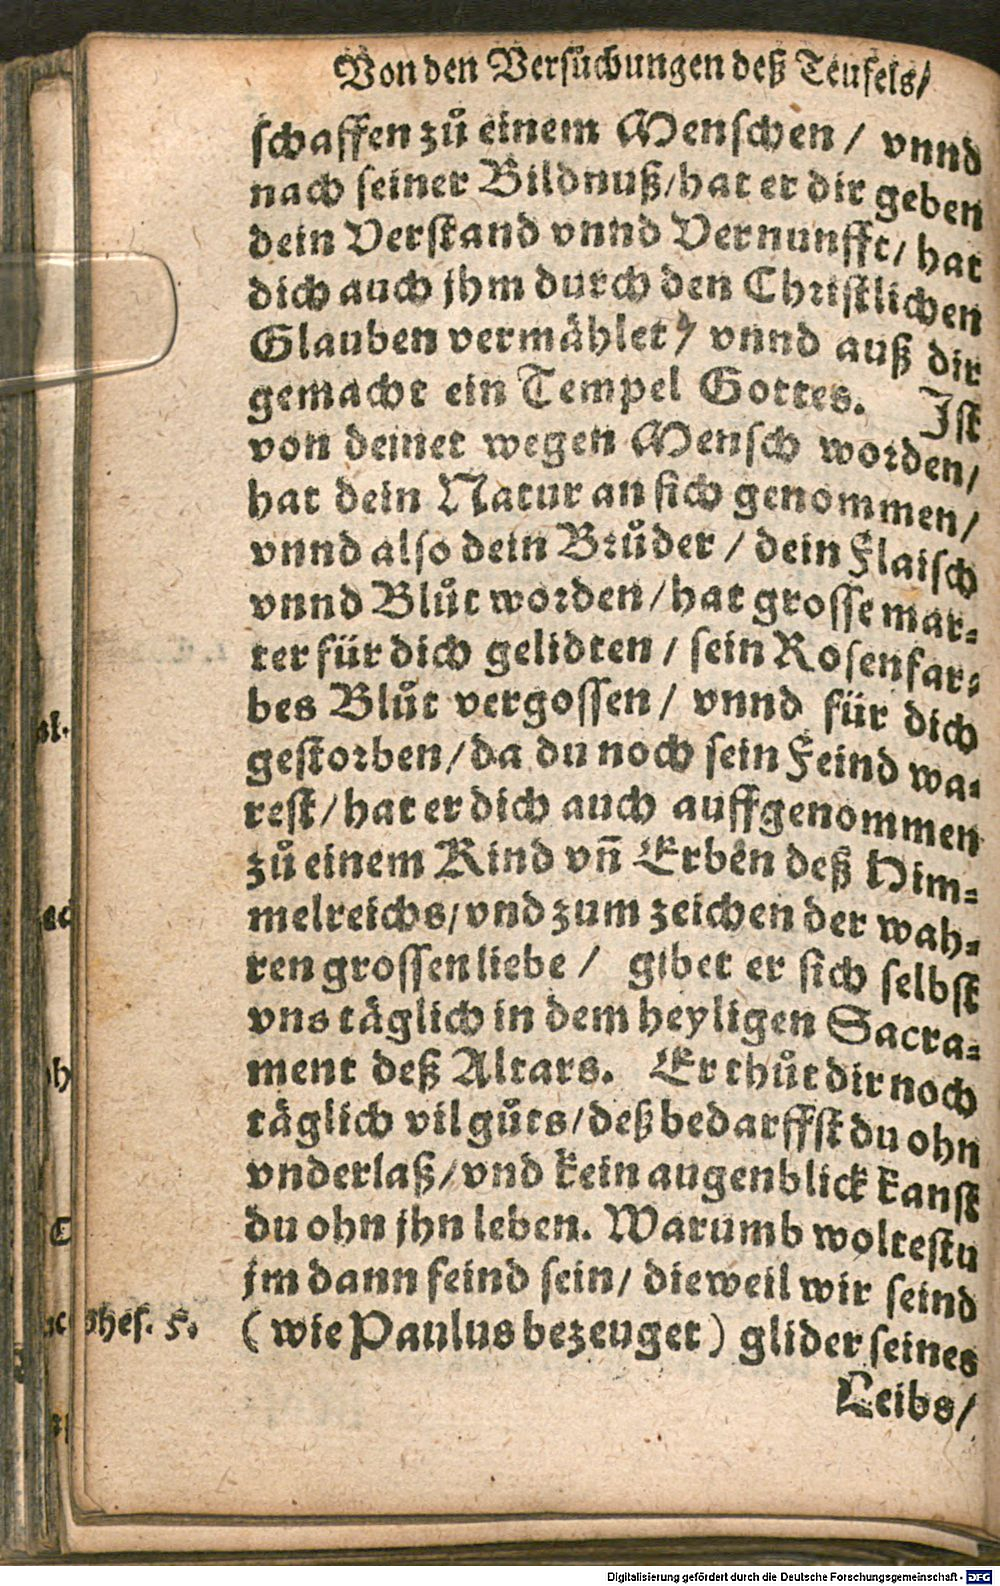 Von den Versůchungen deß Teufels/
schaffen zů einem Menschen / vnnd
nach seiner Bildnuß/hat er dir geben
dein Verstand vnnd Vernunfft/ hat
dich auch jhm durch den Christlichen
Glauben vermählet/ vnnd auß dir
gemacht ein Tempel Gottes. Ist
von deinet wegen Mensch worden/
hat dein Natur an sich genommen/
vnnd also dein Brůder / dein Flaisch
vnnd Blůt worden/hat grosse mar⸗
ter für dich gelidten / sein Rosenfar⸗
bes Blůt vergossen/ vnnd für dich
gestorben/da du noch sein Feind wa⸗
rest/hat er dich auch auffgenommen
zů einem Kind vñ Erben deß Him⸗
melreichs/vnd zum zeichen der wah⸗
ren grossen liebe / gibet er sich selbst
vns täglich in dem heyligen Sacra⸗
ment deß Altars. Er thůt dir noch
täglich vil gůts/deß bedarffst du ohn
vnderlaß/vnd kein augenblick kanst
du ohn jhn leben. Warumb woltestu
jm dann feind sein/ dieweil wir seind
phes. 5. (wie Paulus bezeuget) glider seines
Leibs/
Digitalisierung gefördert durch die Deutsche Forschungsgemeinschaft - DFG